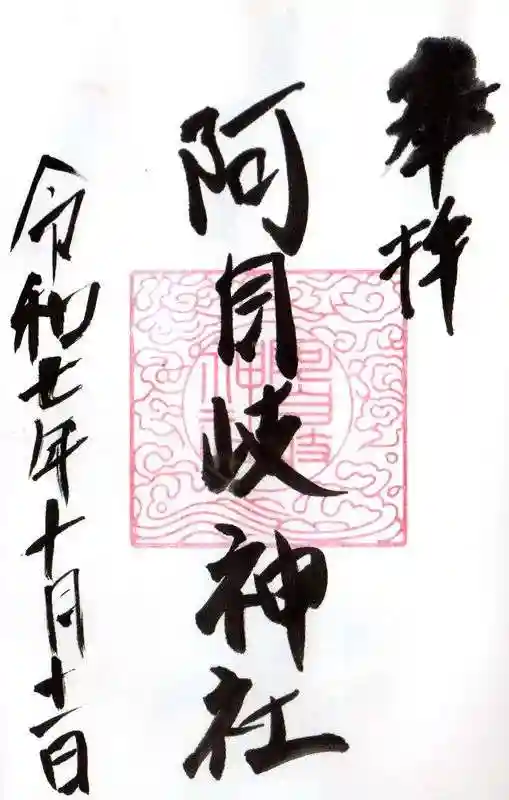 奉拝
阿自岐神社
令和七年十月十一日